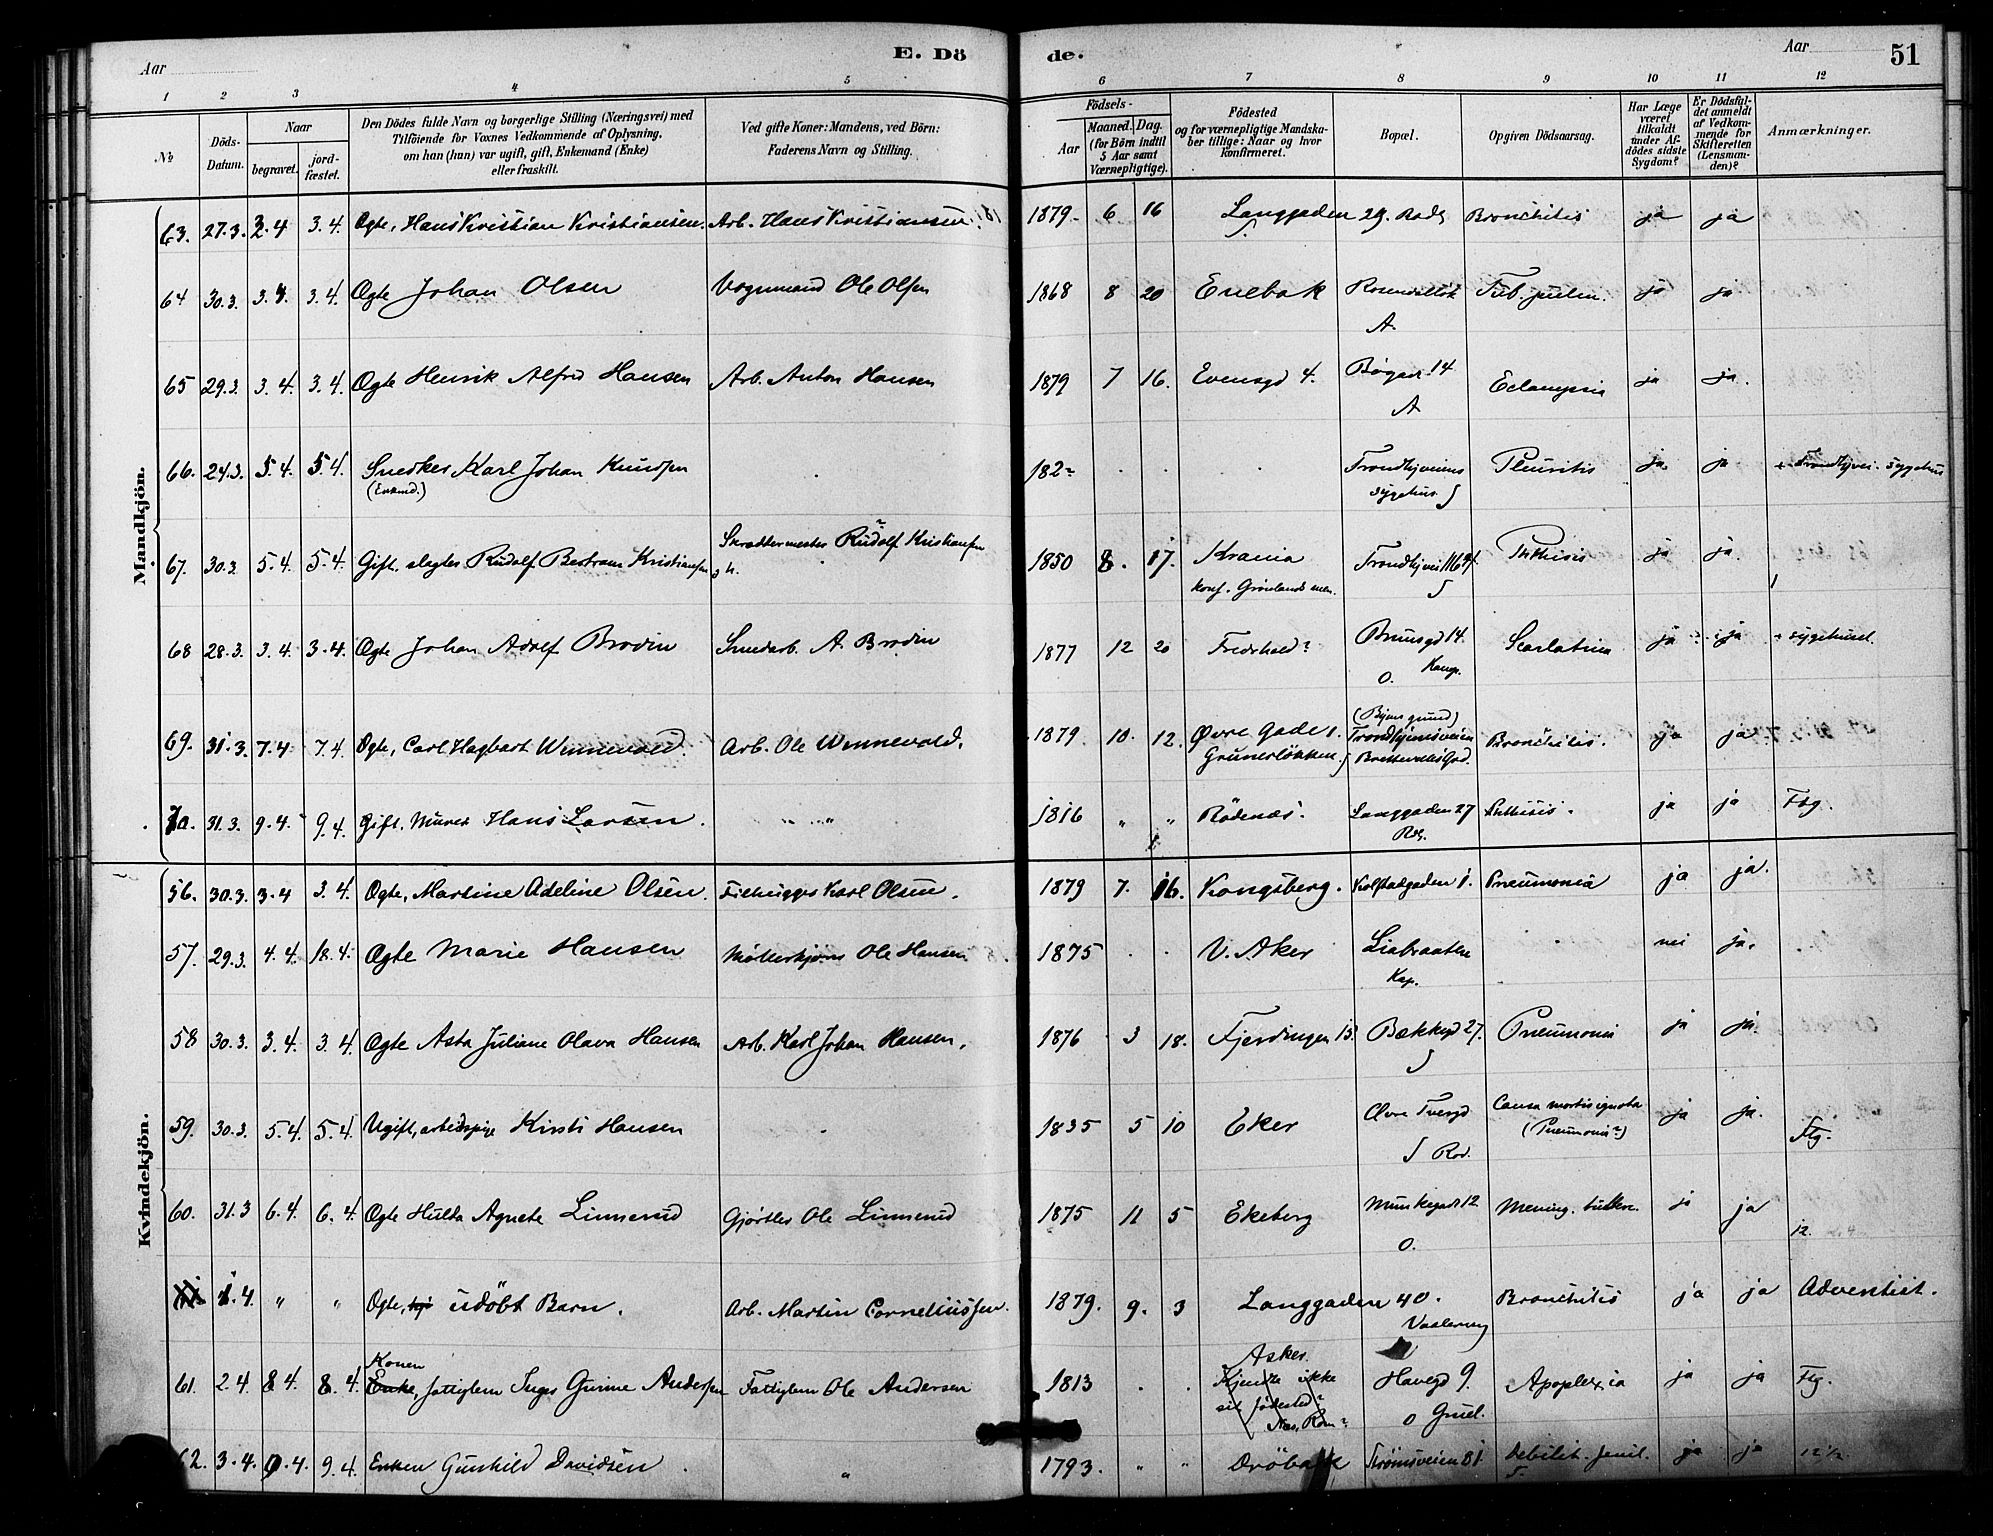 Aar
E. Dö
de.
Aar
51
1 2 3 4 5 6 7 8 9 10 11 12
No
Döds-Datum.
Naar
begravet.
jord-fæstet.
Den Dödes fulde Navn og borgerlige Stilling (Næringsvei) med
Tilföiende for Voxnes Vedkommende af Oplysning,
om han (hun) var ugift, gift, Enkemand (Enke)
eller fraskilt.
Ved gifte Koner: Mandens, ved Börn:
Faderens Navn og Stilling.
Födsels-
Aar
Maaned. Dag.
(for Börn indtil
5 Aar samt
Værnepligtige).
Födested
og for værnepligtige Mandska-
ber tillige: Naar og hvor
konfirmeret.
Bopæl.
Opgiven Dödsaarsag.
Har Læge
været
tilkaldt
under Af-
dödes sidste
Sygdom?
Er Dödsfal-
det anmeldt
af Vedkom-
mende for
Skifteretten
(Lensman-
den)?
Anmærkninger.
Mandkjön.
63. 27.3. 3.4 3.4. Ægte, Hans Kristian Kristiansen. Arb. Hans Kristiansen. 1879. 6 16 Langgaden 29. Rodg Bronchitis ja ja
64 30.3. 3.4. 3.4. Ægte Johan Olsen Vognmand Ole Olsen 1868 8 20 Enebak Tub. pulm. ja ja
A.
65 29.3. 3.4. 3.4. Ægte Henrik Alfred Hansen Arb. Anton Hansen 1879 7 16. Evensgd 4. Bøgad. 14 Eclampsia ja ja.
A
66. 24.3. 5.4. 5.4. Snedker Karl Johan Knudsen 182- Trondhjveiens Pleuritis ja ja Trondhjvei. Sygehus
(Enkmd.) sygehus
67. 30.3. 5.4. 5.4. Gift. slagter Rudolf Bertram Kristiansen Skræddermester Rudolf Kristiansen 1850 8. 17. Krania Trondhjvei 116 Phthisis ja ja.
konf. Grønlands men.
68 28.3. 3.4. 3.4. Ægte Johan Adolf Brodin Smedarb. A. Brodin 1877 12 20 Fredrhald? Brunsgd 14. Scarlatina ja ja sygehuset
O. Kamp.
69. 31.3. 7.4. 7.4 Ægte, Carl Hagbart Wennevold. Arb. Ole Wennevold. 1879. 10. 12. Øvre Gade 1. (Byens grund) Bronchitis. ja ja
Grunerløkken. Trondhjemsveien
70. 31.3. 9.4. 9.4. Gift. Murer Hans Larsen. " " 1816 " " Rödenæs. Langgaden 27 Phthisis. ja ja Ftg.
Rog.
Kvindekjön.
56. 30.3. 3.4 3.4. Ægte, Martine Adeline Olsen. Filhugger Karl Olsen. 1879 7. 16. Kongsberg. Kolstadgaden 1. Pneumonia ja ja.
57. 29.3. 4.4. 18.4. Ægte Marie Hansen Møllerkjører Ole Hansen. 1875 V. Aker Liabraaten nei ja.
Kap.
58 30.3. 3.4. 3.4. Ægte Asta Juliane Olava Hansen Arb. Karl Johan Hansen. 1876 3 18. Fjerdingen 13. Bækkegd 27. Pneumonia ja ja.
59. 30.3. 5.4. 5.4. Ugift, arbeidspige Kirsti Hansen 1835 5 10 Eker Øvre Tvergd Causa mortis ignota ja ja. Ftg.
Rod. (Pneumonia?)
60. 31.3 6.4. 6.4. Ægte Hulda Agnete Linnerud Gjørtler Ole Linnerud 1875 11 5 Ekeberg Munkegad 12 Mening. tuberc. ja ja 12.
O.
1.4. " " Ægte, udöbt Barn. Arb. Martin Corneliussen. 1879. 9. 3 Langgaden 40. Bronchitis ja ja Adventist.
Vaalereng
61. 2.4 8.4. 8.4. Konen Enke, fattiglem Inger Gurine Andersen Fattiglem Ole Andersen 1813 Asker. Havegd 9. Apoplexia ja ja Ftg.
Kjendte ikke
sit födested?
Nes, Rom? O Grul.
62. 3.4. 9.4. 9.4. Enken Gunhild Davidsen " 1793. " " Dröbak Strömsveien 81. Debilit. senil. ja ja 12 1/2